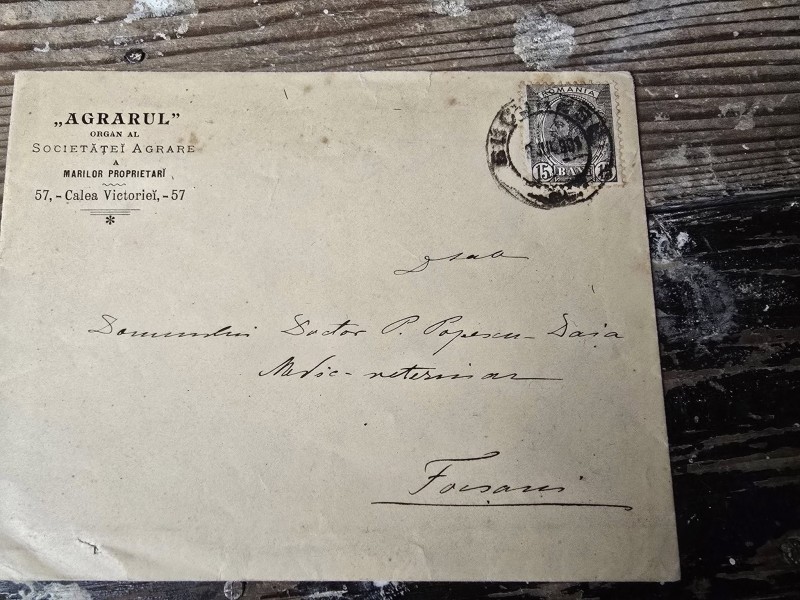 „AGRARUL”
ORGAN AL
SOCIETĂŢEĬ AGRARE
A
MARILOR PROPRIETARĬ
57,- Calea Victorieĭ,-57
ROMANIA
15 BANI 15
BUCURESCI
Dsale
Domnului Doctor P. Popescu-Daia
Medic-veterinar
Focsani